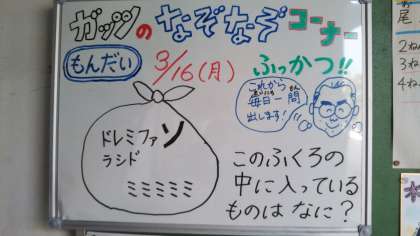 ガッツの なぞなぞ コーナー
もんだい 3/16(月) ふっかつ!!
これから
毎日一問
出します!
ドレミファソ
ラシド
ミミミミミ
このふくろの
中に入っている
ものはなに?
尾
2ね
3ね
4ね